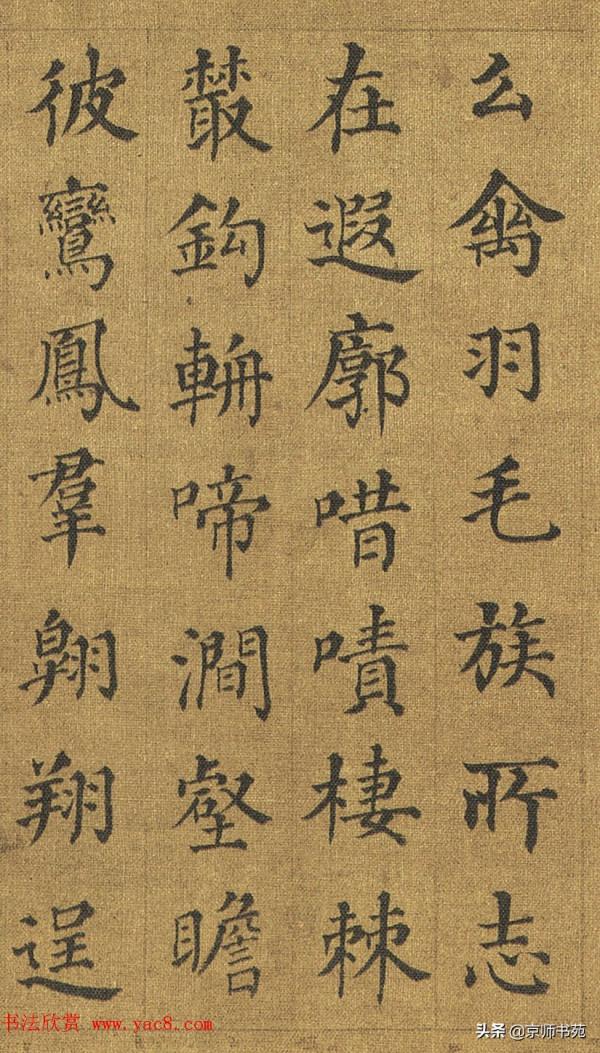 么禽羽毛族所志
在遐廓唶嘖棲棘
藂鈎輈啼澗壑瞻
彼鸞鳳羣翱翔逞
书法欣赏 www.yac8.com
头条@京师书苑